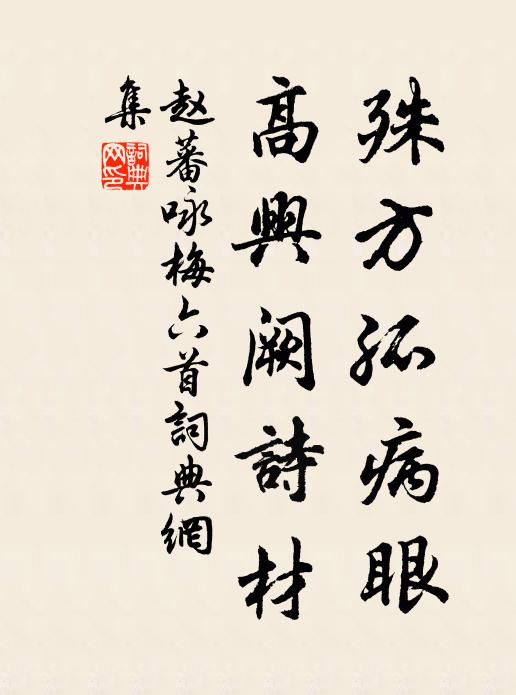 殊方孤病眼
高興闕詩材
赵蕃咏梅六首詞典網
集
詞典
网印